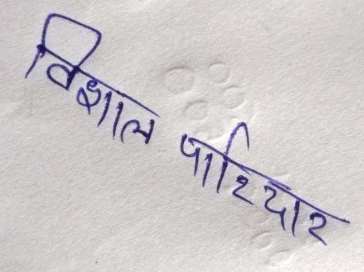 विशाल पाटिदार